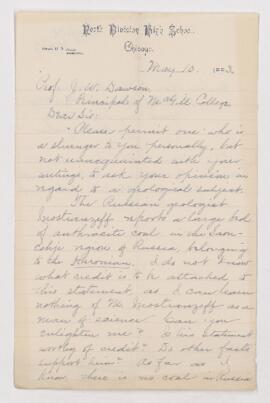 North Division High School
Chicago,
May 10, 1883.
Prof. J. W. Dawson,
Principal of McGill College
Dear Sir:
Please permit one who is
a stranger to you personally, but
not unacquainted with your
writings, to ask your opinion in
regard to a geological subject.
The Russian geologist
reports a large bed
of anthracite coal in the
region of Russia, belonging
to the Huronian. I do not know
what credit is to be attached to
his statement, as I can learn
nothing of Mr. as a
man of science. Can you
enlighten me? Is his statement
worthy of credit? Do other facts
support him? As far as I
know, there is no coal in Russia